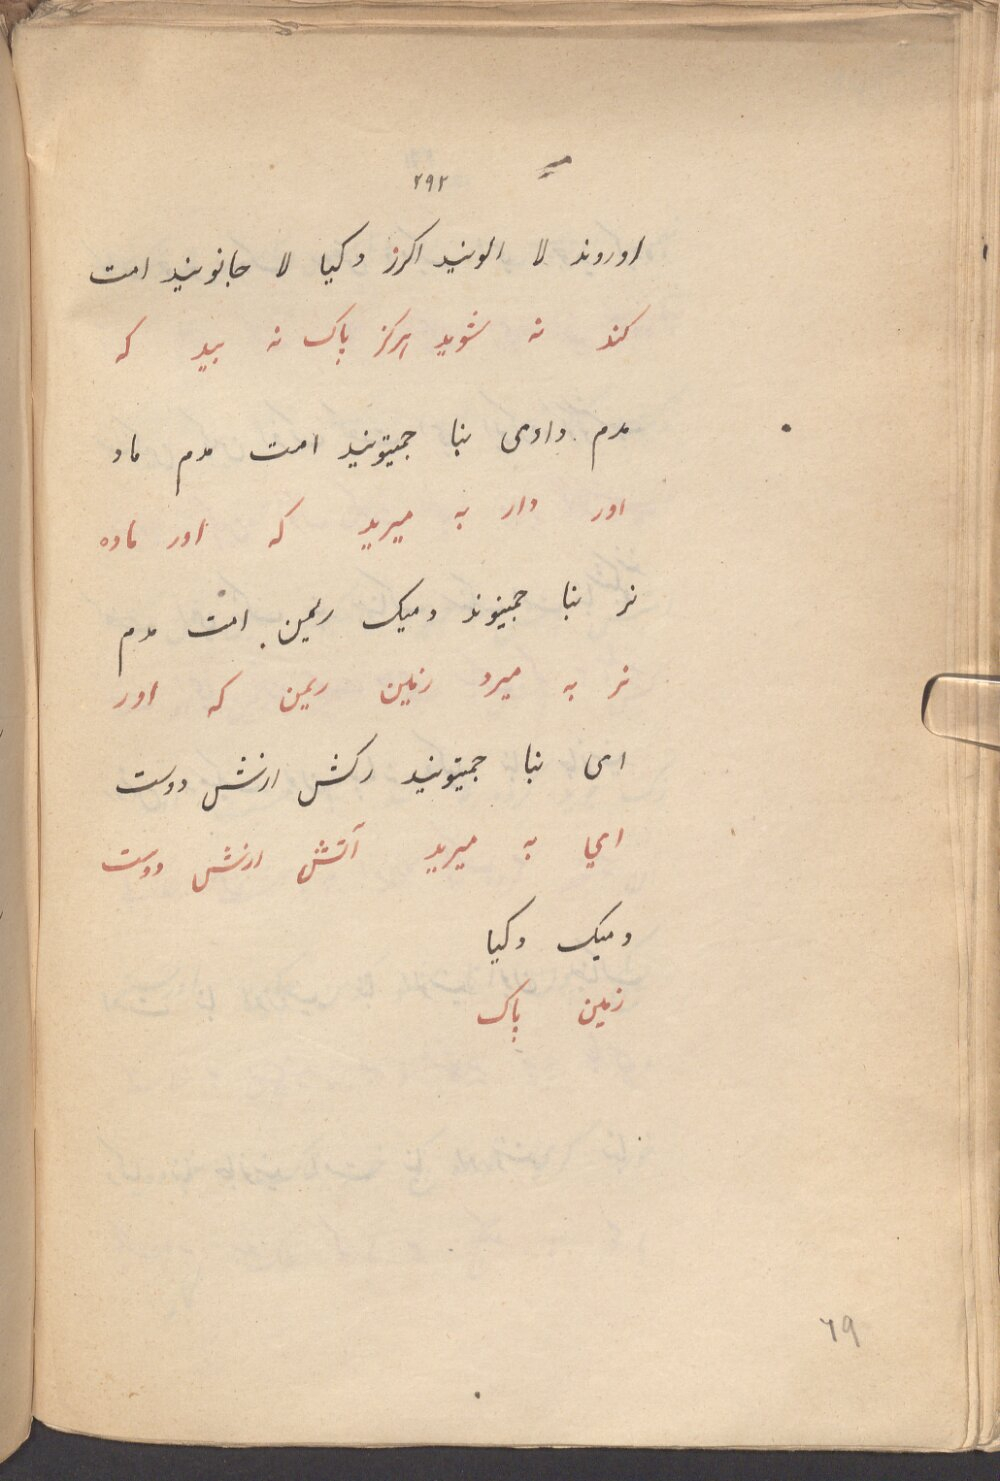 ۲۹۲
اوروند لا الونید اکرز دکیا لا جانونید امت
کند نه شوید اهرکز پاک نه بید که
مدم دادمی بنا جمیتونید امت مدم ماد
اور دار به میرید که اور ماده
نر بنا جمیتوند دمیک ریمن امت مدم
نر به میرد زمین ریمن که اور
امی بنا جمیتونید رکش ارنش دوست
امي به میرید آتش ارنش دوست
دمیک دکیا
زمین پاک
٦٩